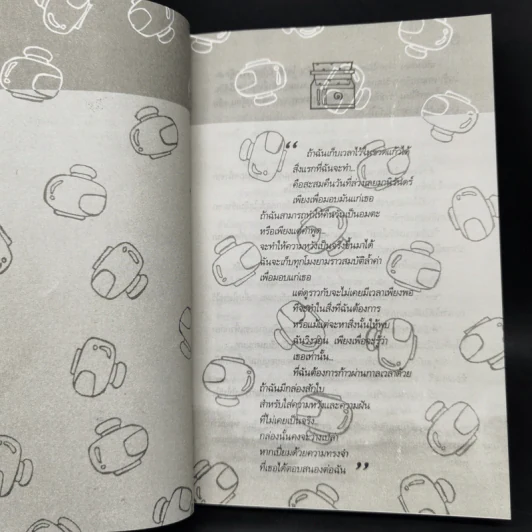 ๑
“ ถ้าฉันเก็บเวลาไว้ในขวดแก้วได้
สิ่งแรกที่ฉันจะทำ...
คือสะสมคืนวันที่ล่วงเลยมานิรันดร์
เพียงเพื่อมอบมันแก่เธอ
ถ้าฉันสามารถทำให้คืนวันเป็นอมตะ
หรือเพียงแค่คำพูด...
จะทำให้ความหวังเป็นจริงขึ้นมาได้
ฉันจะเก็บทุกโมงยามราวสมบัติล้ำค่า
เพื่อมอบแก่เธอ
แต่ดูราวกับจะไม่เคยมีเวลาเพียงพอ
ที่จะทำในสิ่งที่ฉันต้องการ
หรือแม้แต่จะหาสิ่งนั้นให้พบ
ฉันวิงวอน เพียงเพื่อจะรู้ว่า
เธอเท่านั้น...
ที่ฉันต้องการก้าวผ่านกาลเวลาด้วย
ถ้าฉันมีกล่องสักใบ
สำหรับใส่ความหวังและความฝัน
ที่ไม่เคยเป็นจริง
กล่องนั้นคงจะว่างเปล่า
หากเปี่ยมด้วยความทรงจำ
ที่เธอได้ตอบสนองต่อฉัน ”